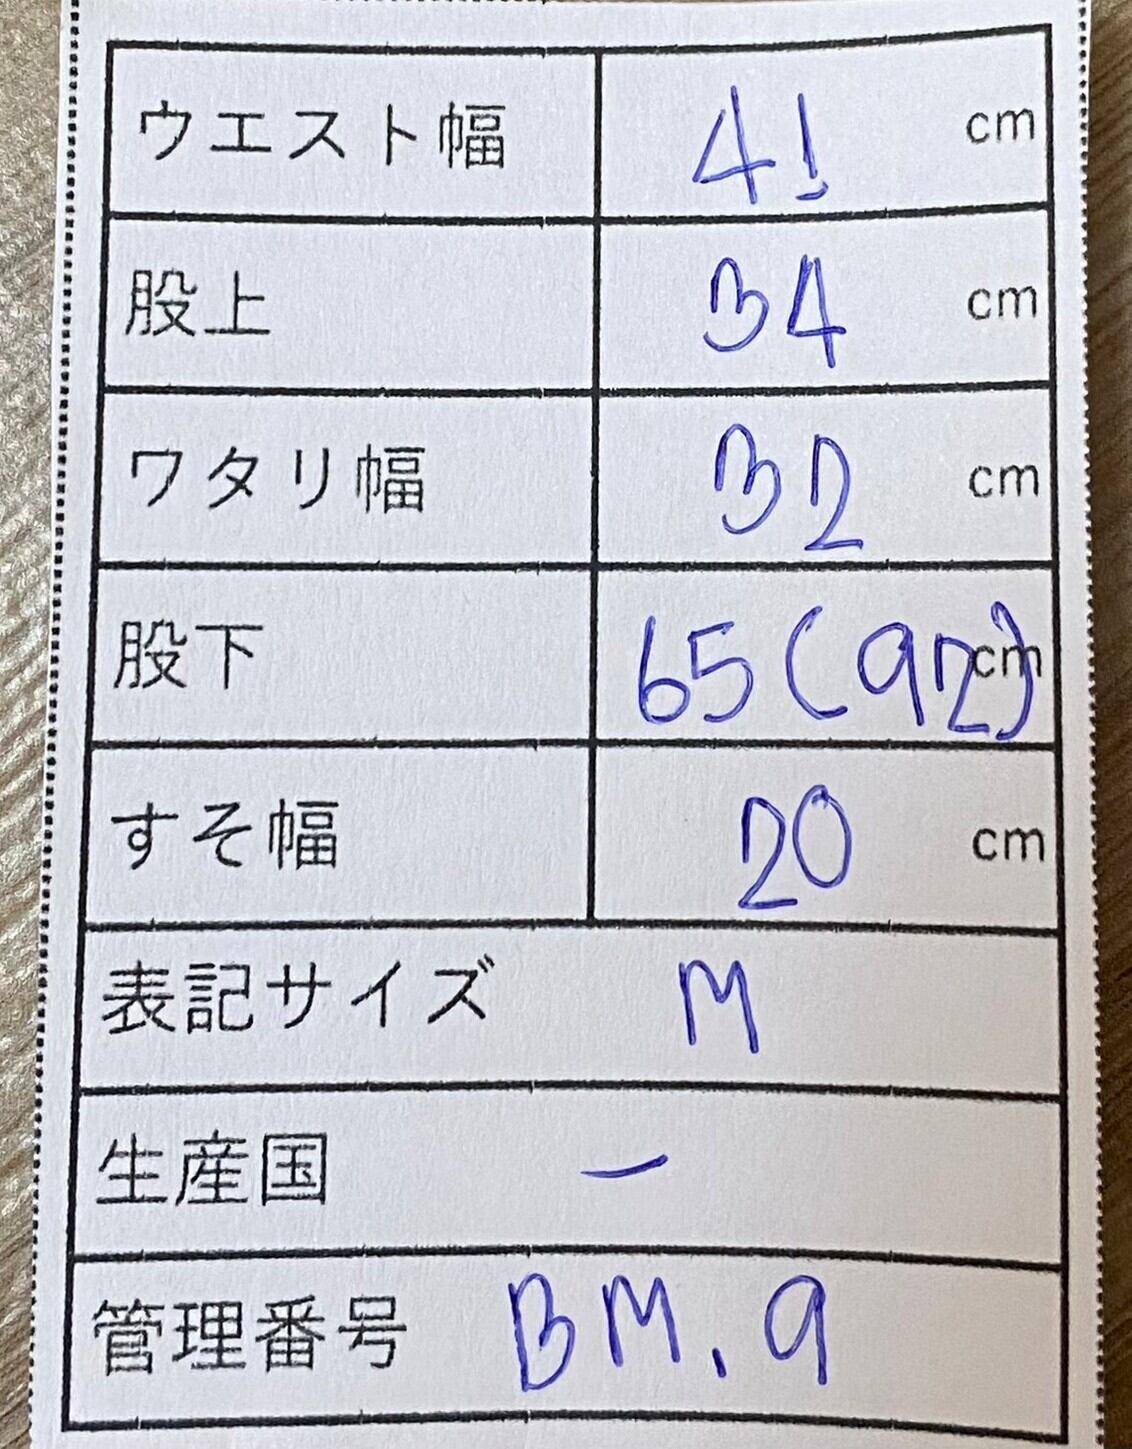 ウエスト幅 41 cm
股上 34 cm
ワタリ幅 32 cm
股下 65(92)cm
すそ幅 20 cm
表記サイズ M
生産国 ー
管理番号 BM.9